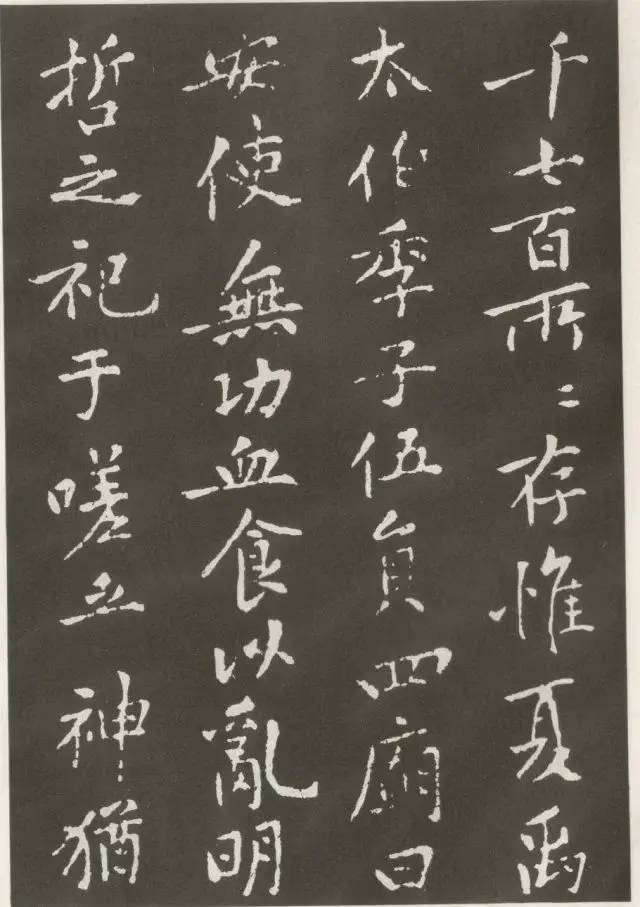 千七百所〻存惟夏禹
太伯季子伍員四廟曰
安使無功血食以亂明
哲之祀于嗟乎神猶